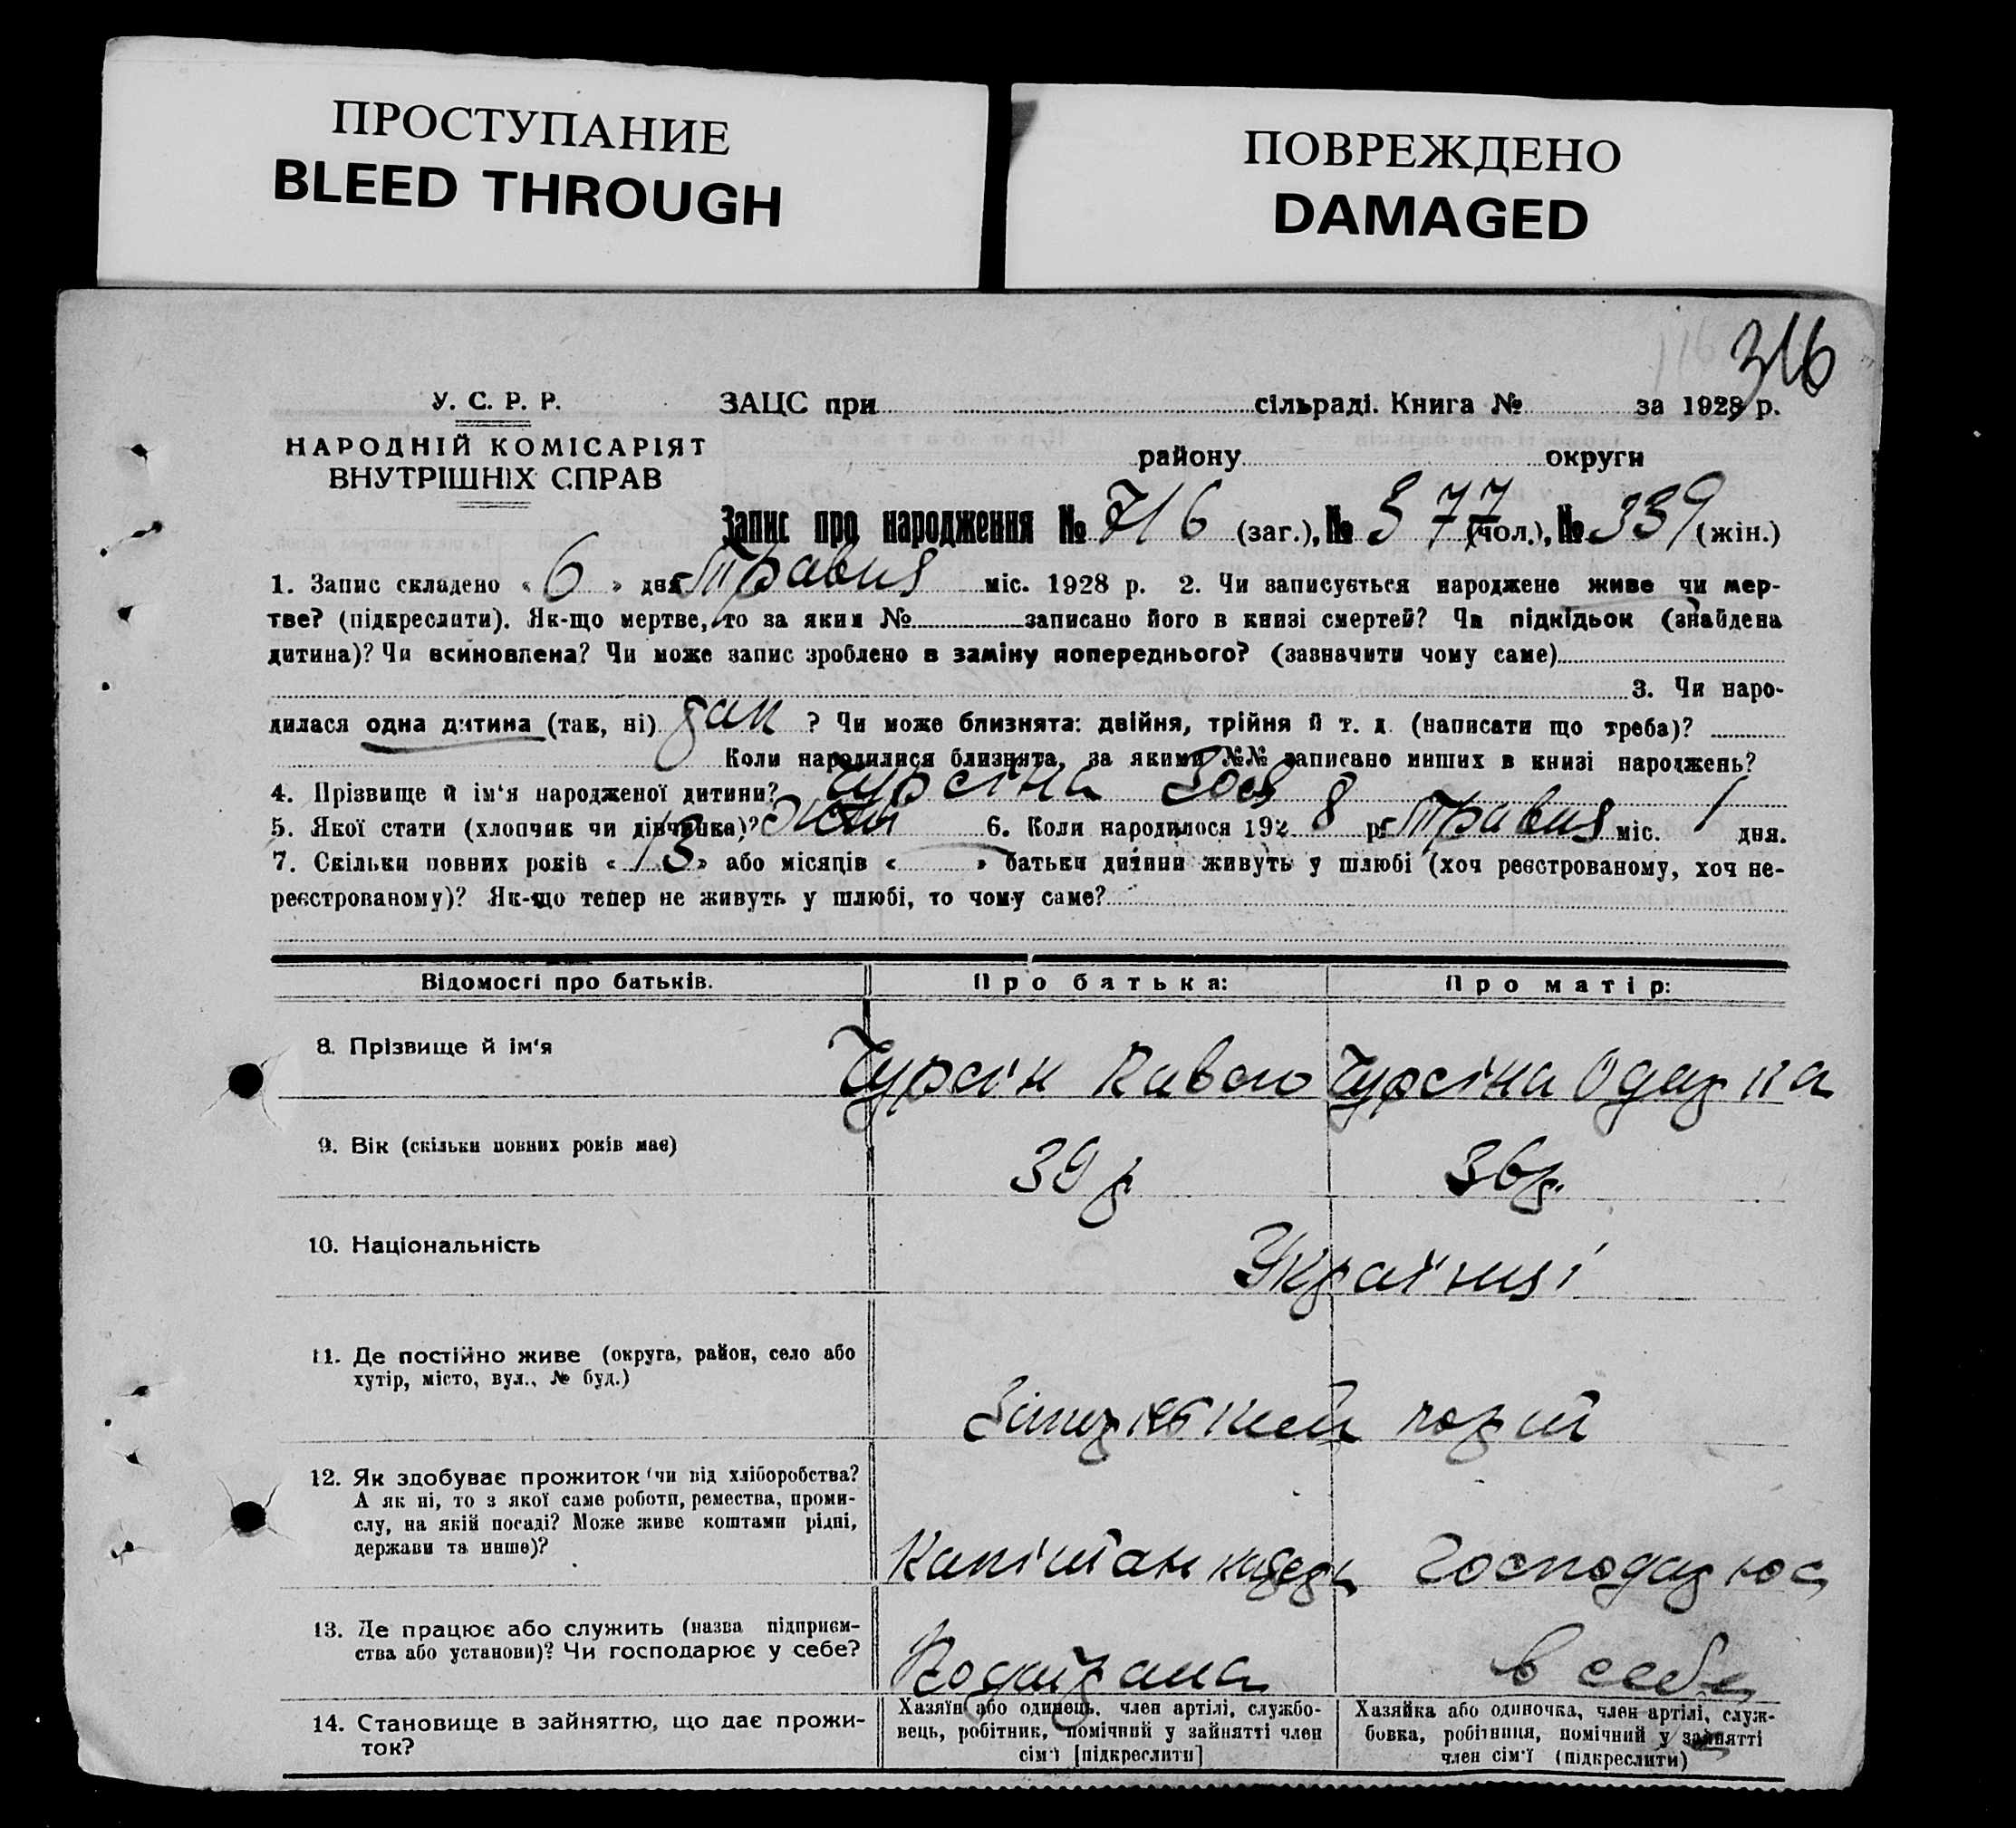 ПРОСТУПАНИЕ
BLEED THROUGH
ПОВРЕЖДЕНО
DAMAGED
316
У. С. Р. Р.
НАРОДНІЙ КОМІСАРІЯТ
ВНУТРІШНІХ СПРАВ
ЗАЦС при сільраді. Книга № за 1928 р.
району округи
Запис про народження № 716 (заг.), № 377 (чол.), № 339 (жін.)
1. Запис складено « 6 » дня Травня міс. 1928 р. 2. Чи записується народжене живе чи мер-
тве? (підкреслити). Як-що мертве, то за яким № записано його в книзі смертей? Чи підкідьок (знайдена
дитина)? Чи всиновлена? Чи може запис зроблено в заміну попереднього? (зазначити чому саме)
3. Чи наро-
дилася одна дитина (так, ні) ? Чи може близнята: двійня, трійня й т. д. (написати що треба)?
Коли народилися близнята, за якими №№ записано инших в книзі народжень?
4. Прізвище й ім'я народженої дитини? Чурсіна Зоя
5. Якої стати (хлопчик чи дівчинка)? Жін 6. Коли народилося 192 8 р. Травня міс. 1 дня.
7. Скільки повних років « 13 » або місяців « » батьки дитини живуть у шлюбі (хоч реєстрованому, хоч не-
реєстрованому)? Як-що тепер не живуть у шлюбі, то чому саме?
Відомості про батьків. Про батька: Про матір:
8. Прізвище й ім'я Чурсін Павло Чурсіна Одарка
9. Вік (скільки повних років має) 39 р 36 р.
10. Національність Українці
11. Де постійно живе (округа, район, село або
хутір, місто, вул., № буд.)
12. Як здобуває прожиток (чи від хліборобства?
А як ні, то з якої саме роботи, ремества, проми-
слу, на якій посаді? Може живе коштами рідні,
держави та инше)?
Капітан Господарює
13. Де працює або служить (назва підприєм-
ства або установи)? Чи господарює у себе?
в себе
14. Становище в зайняттю, що дає прожи-
ток?
Хазяїн або одинець, член артілі, службо-
вець, робітник, помічний у зайнятті член
сім'ї [підкреслити]
Хазяйка або одиночка, член артілі, служ-
бовка, робітниця, помічний у зайнятті
член сім'ї (підкреслити)